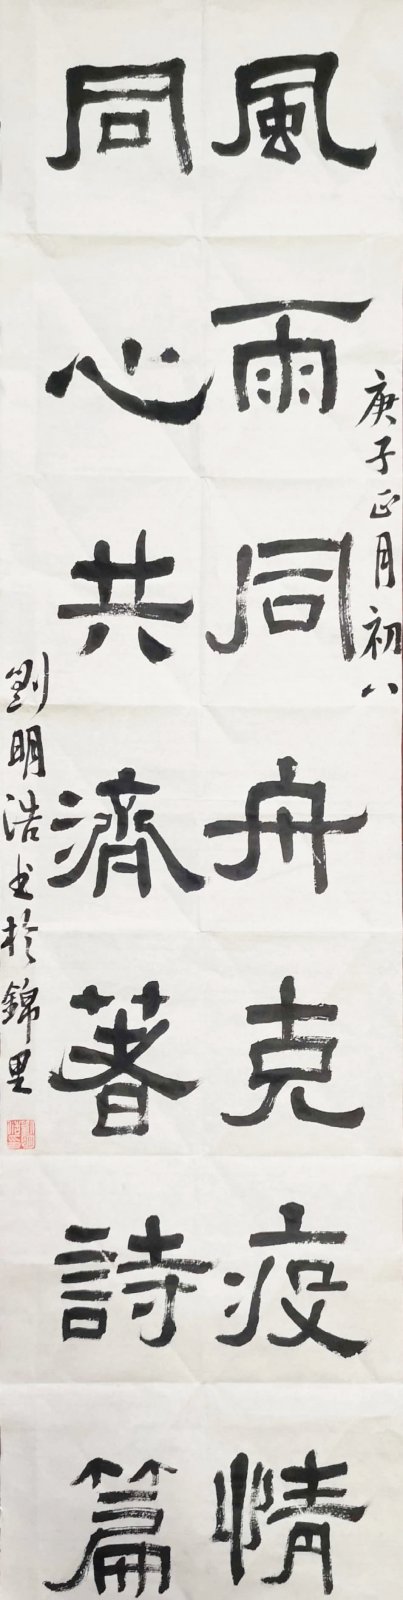 庚子正月初八
風雨同舟克疫情
同心共濟著詩篇
劉明浩书於錦里